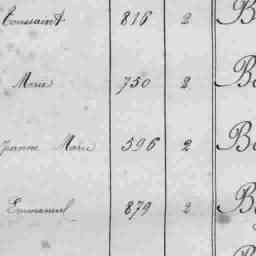 Toussaint 816 2 B
Marie 750 2 B
Jeanne Marie 596 2 B
Emmanuel 879 2 B